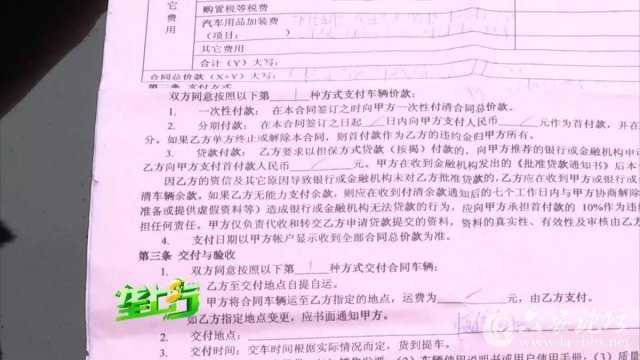 它
费
用
购置税等税费
汽车用品加装费
(项目: )
其它费用
合计(Y)大写:
合同总价款(X+Y)大写:
第二条 支付方式
双方同意按照以下第 1 种方式支付车辆价款:
1. 一次性付款: 在本合同签订之时向甲方一次性付清合同总价款。
2. 分期付款: 在本合同签订之日起 日内向甲方支付人民币 元作为首付, 并在
分。如果乙方单方终止或解除本合同, 则首付款作为乙方的违约金归甲方所有。
3. 贷款付款: 乙方要求以担保方式贷款(按揭)付款的, 向甲方推荐的银行或金融机构申
乙方向甲方支付首付款人民币 元。甲方在收到金融机构发出的《批准贷款通知书》后本
因乙方的资信及其它原因导致银行或金融机构未对乙方批准贷款的, 乙方应在收到甲方或银行或
清车辆余款。如果乙方无能力支付余款, 则应在收到付清余款通知后的七个工作日内与甲方协商解除
准备或提供虚假资料等)造成银行或金融机构无法贷款的行为, 应向甲方承担首付款的 10%作为违
担任何责任。甲方仅负责代收和转交乙方申请贷款提交的资料, 资料的真实性、有效性及审核由乙方
4. 支付日期以甲方帐户显示收到全部合同总价款为准。
第三条 交付与验收
1. 双方同意按照以下第 1 种方式交付合同车辆:
乙方至交付地点自提自运。
甲方将合同车辆运至乙方指定的地点, 运费为 元, 由乙方支付。
如乙方指定地点变更, 应书面通知甲方。
2. 交付地点:
3. 交付时间: 交车时间根据实际情况而定, 货到提车。